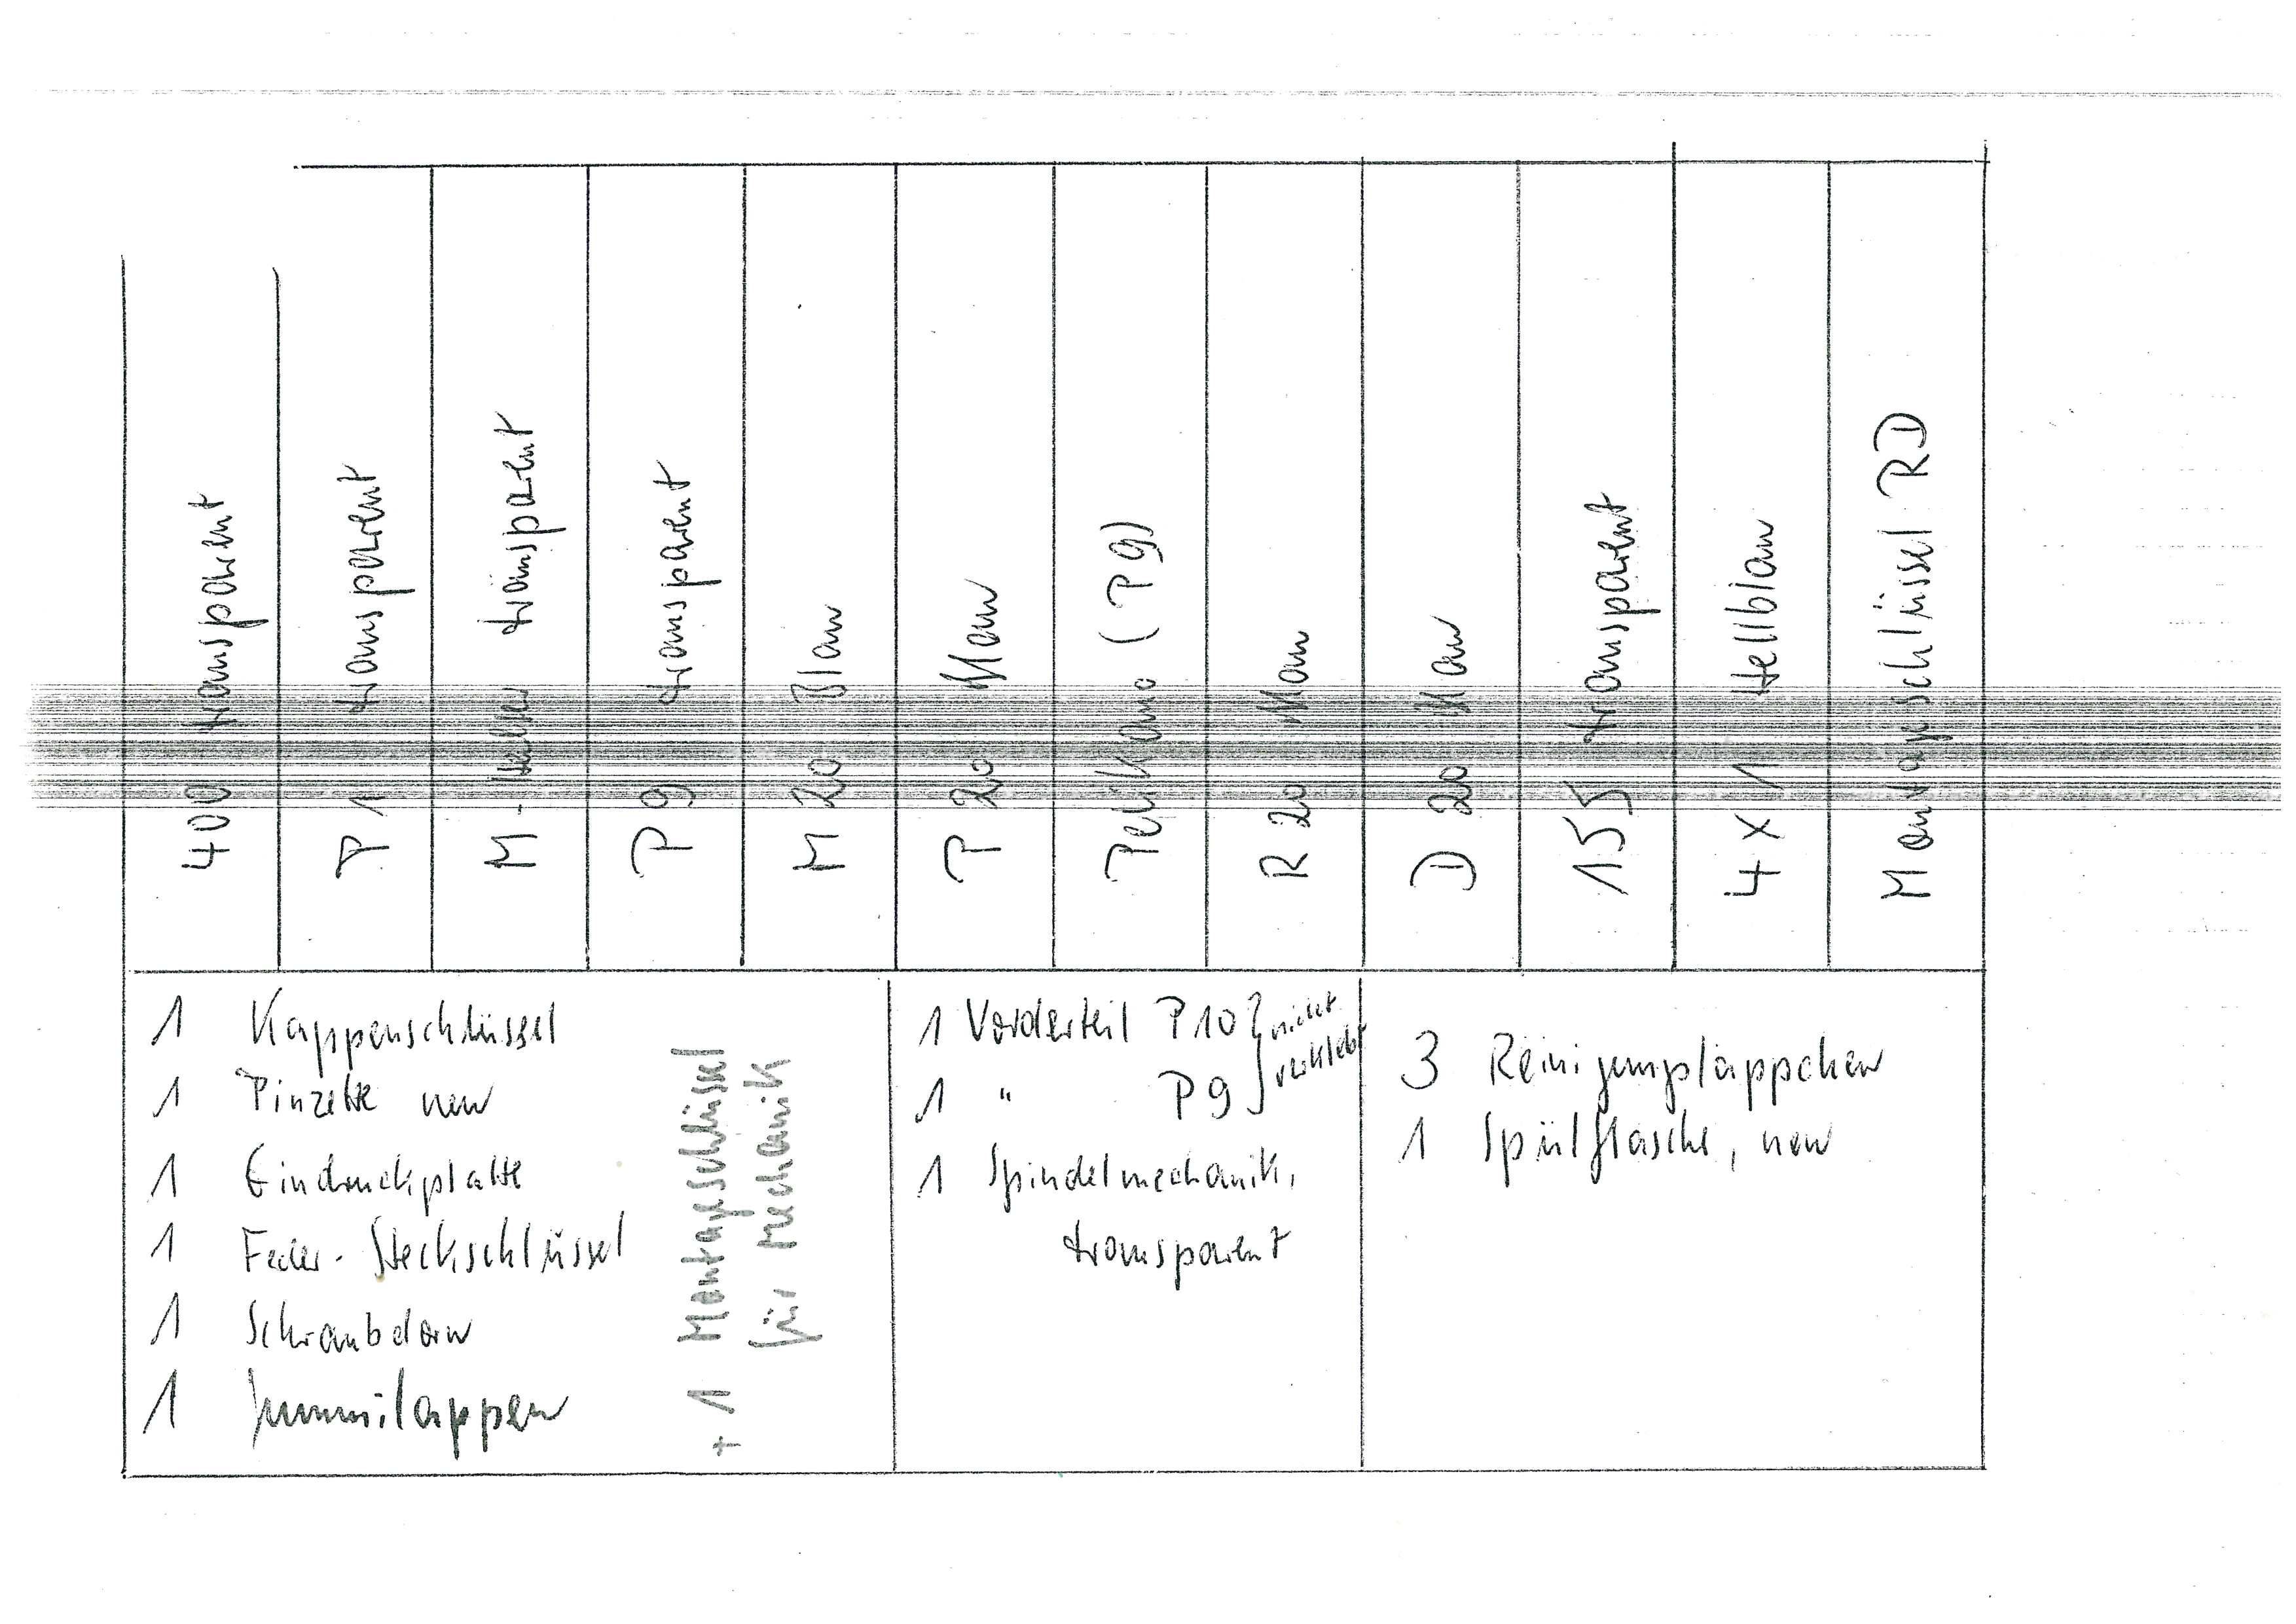 400 transparent
P1 transparent
M- transparent
P9 transparent
M 20 Blau
P 20 blau
Pelikano (P9)
R 20 blau
D 20 blau
155 transparent
4 x 1 Hellblau
Montageschlüssel RD
1 Kappenschlüssel
1 Pinzette neu
1 Eindruckplatte
1 Feder-Steckschlüssel
1 Schraubdorn
1 Gummilappen
+ 1 Montageschlüssel
für Mechanik
1 Vorderteil P10 } nicht
1 " P9 } verklebt
1 Spindelmechanik,
transparent
3 Reinigungsläppchen
1 Spülflasche, neu